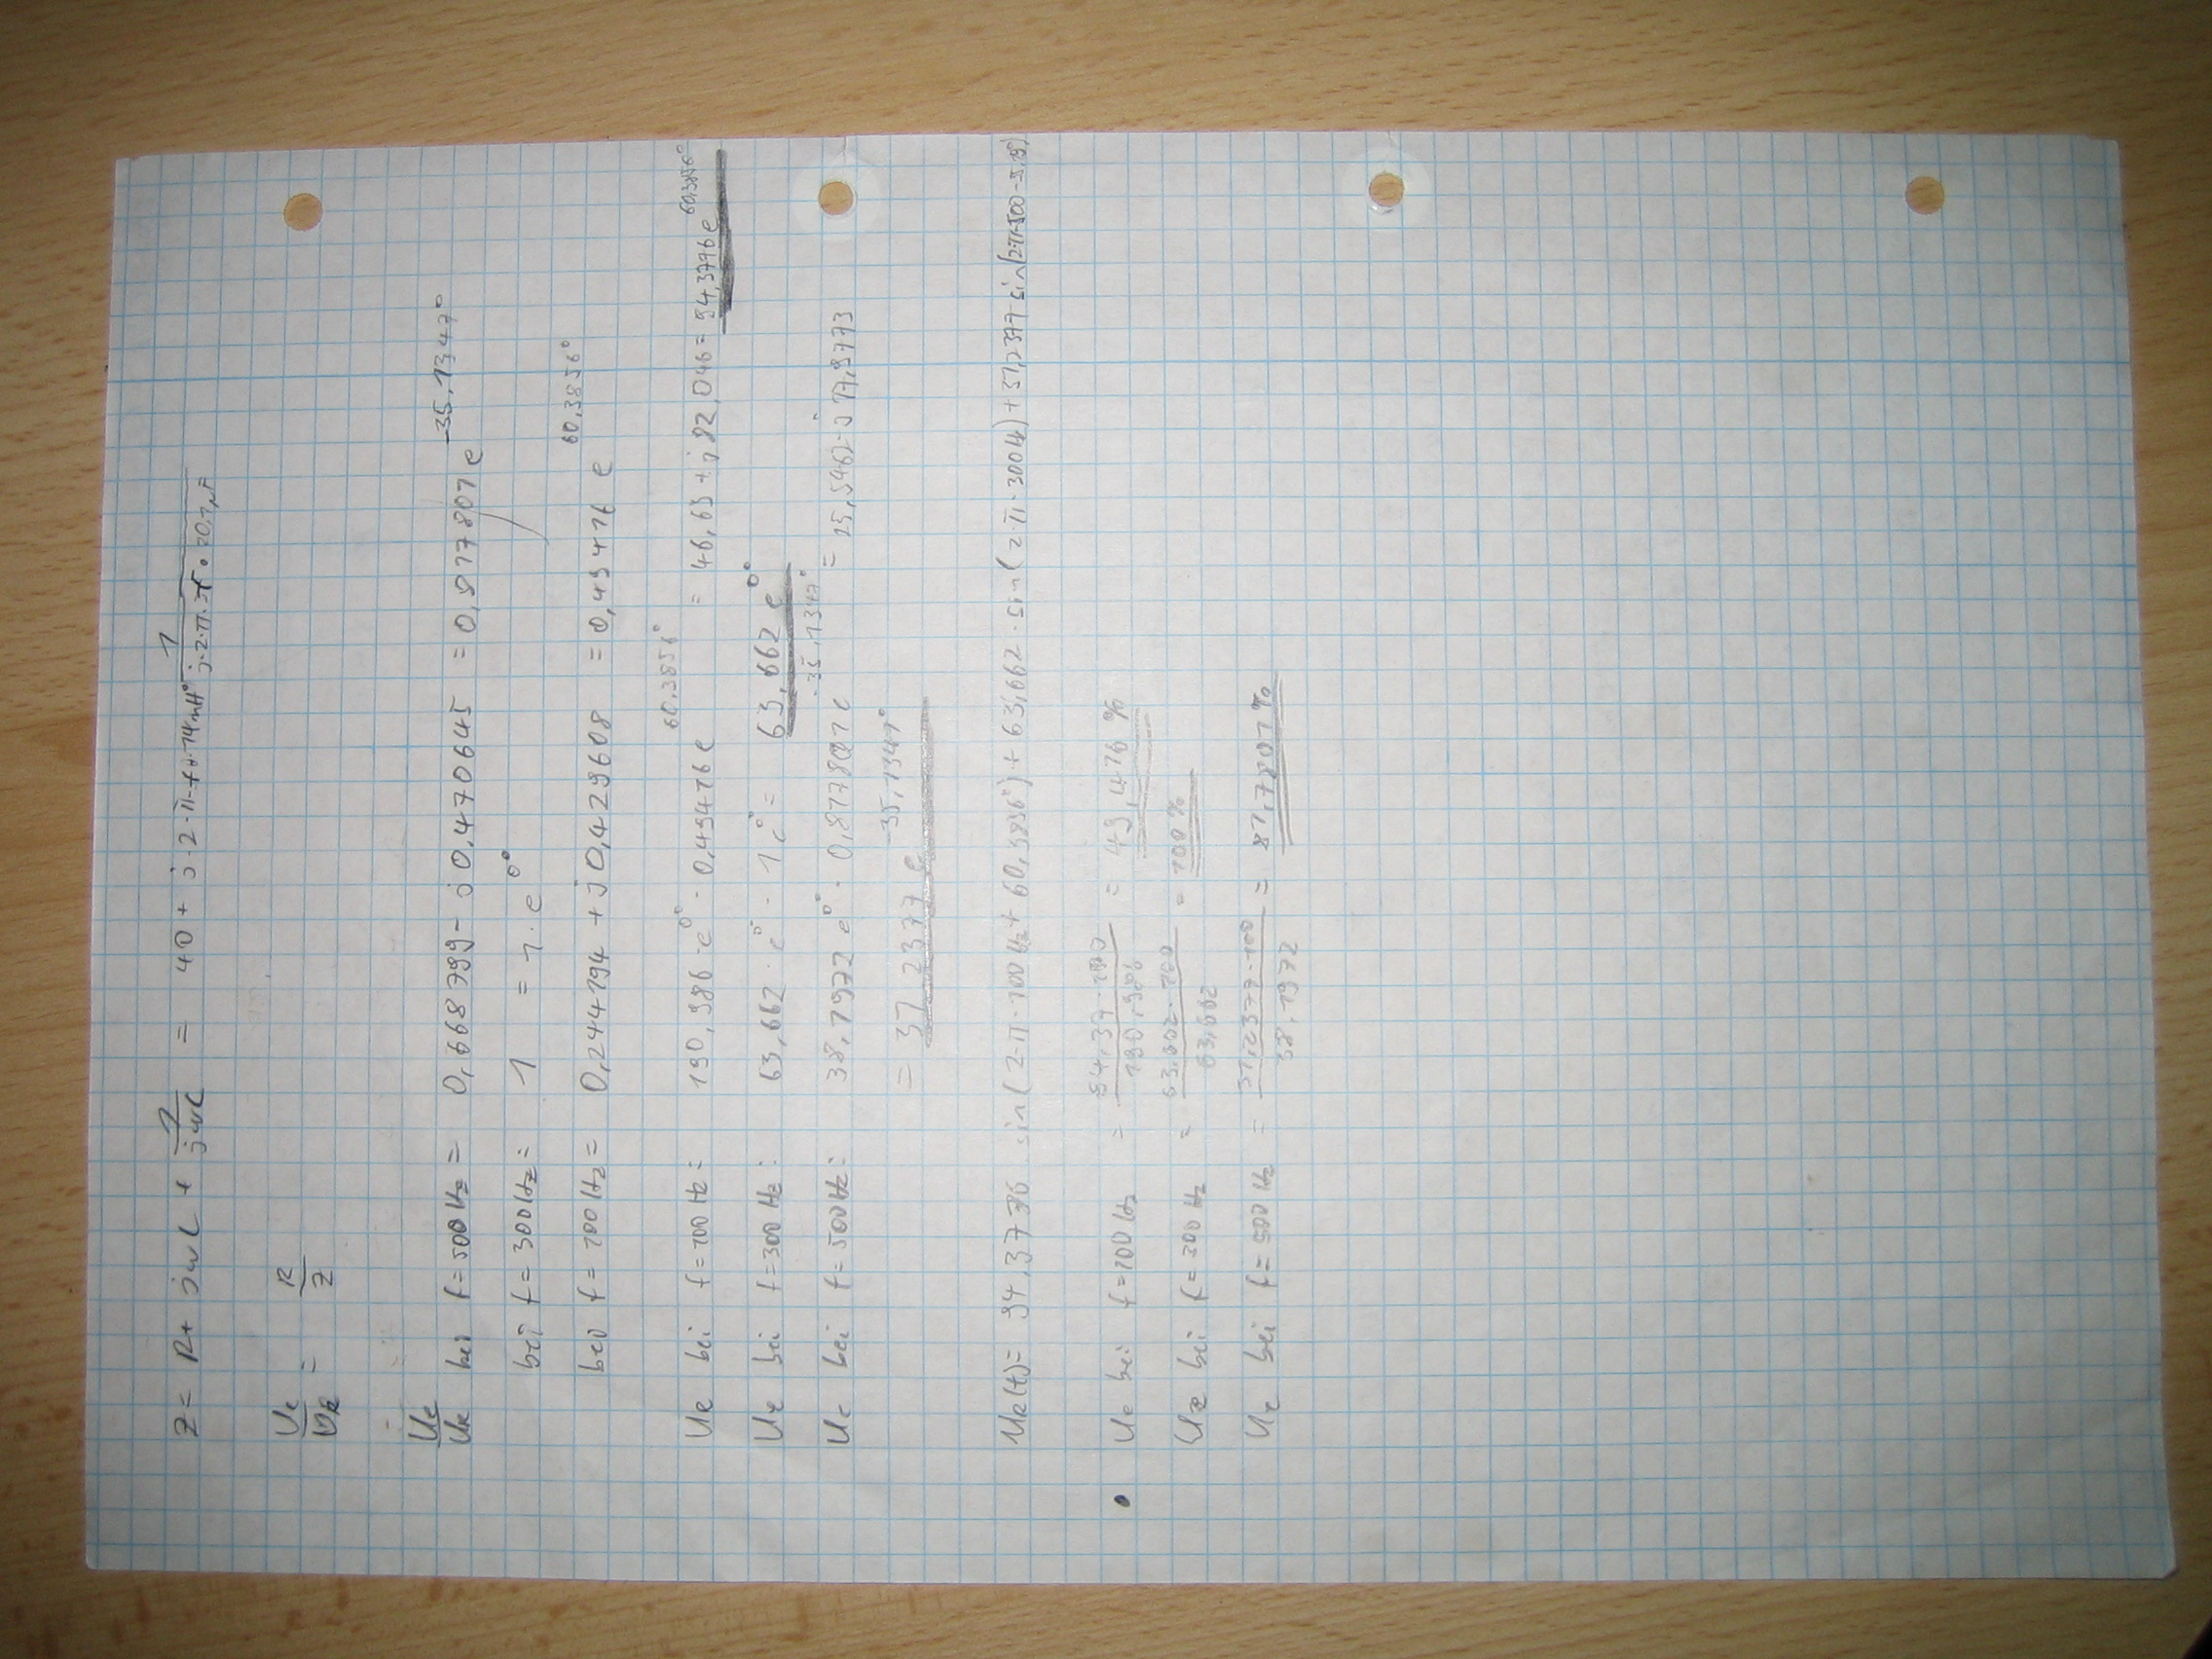 Z = R + jωL + 1/jωC = 40 + j·2·π·f·14mH · 1/j·2·π·f·20,1µF
Ue/UR = R/Z
Ue/UR bei f=500Hz = 0,668799 - j0,470645 = 0,8177807 e^-35,1347°
bei f=300Hz = 1 = 1·e^0°
bei f=100Hz = 0,244194 + j0,429608 = 0,49416 e^60,3856°
UR bei f=100Hz: 190,986·e^0°·0,49416 e^60,3856° = 46,63+j82,046 = 94,3776 e^60,3856°
Ue bei f=300Hz: 63,662·e^0°·1e^0° = 63,662 e^0°
Ue bei f=500Hz: 38,1972 e^0°·0,8177807 e^-35,1347° = 25,5462-j17,9773
= 31,2377 e^-35,1347°
UR(t)= 94,3776 sin(2·π·100Hz+60,3856°)+63,662·sin(2·π·300Hz)+31,2377·sin(2·π·500-35,13°)
Ue bei f=100Hz = 94,37·100/190,986 = 49,416 %
UR bei f=300Hz = 63,662·100/63,662 = 100 %
Ue bei f=500Hz = 31,2377·100/38,1972 = 81,7807 %